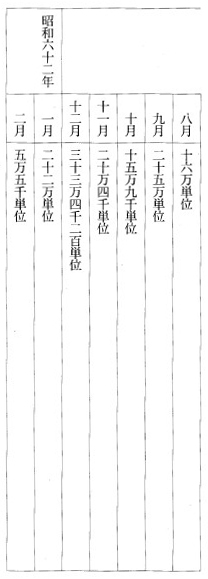 八月 十六万単位
九月 二十五万単位
十月 十五万九千単位
十一月 二十万四千単位
十二月 三十三万四千二百単位
昭和六十二年
一月 二十二万単位
二月 五万五千単位